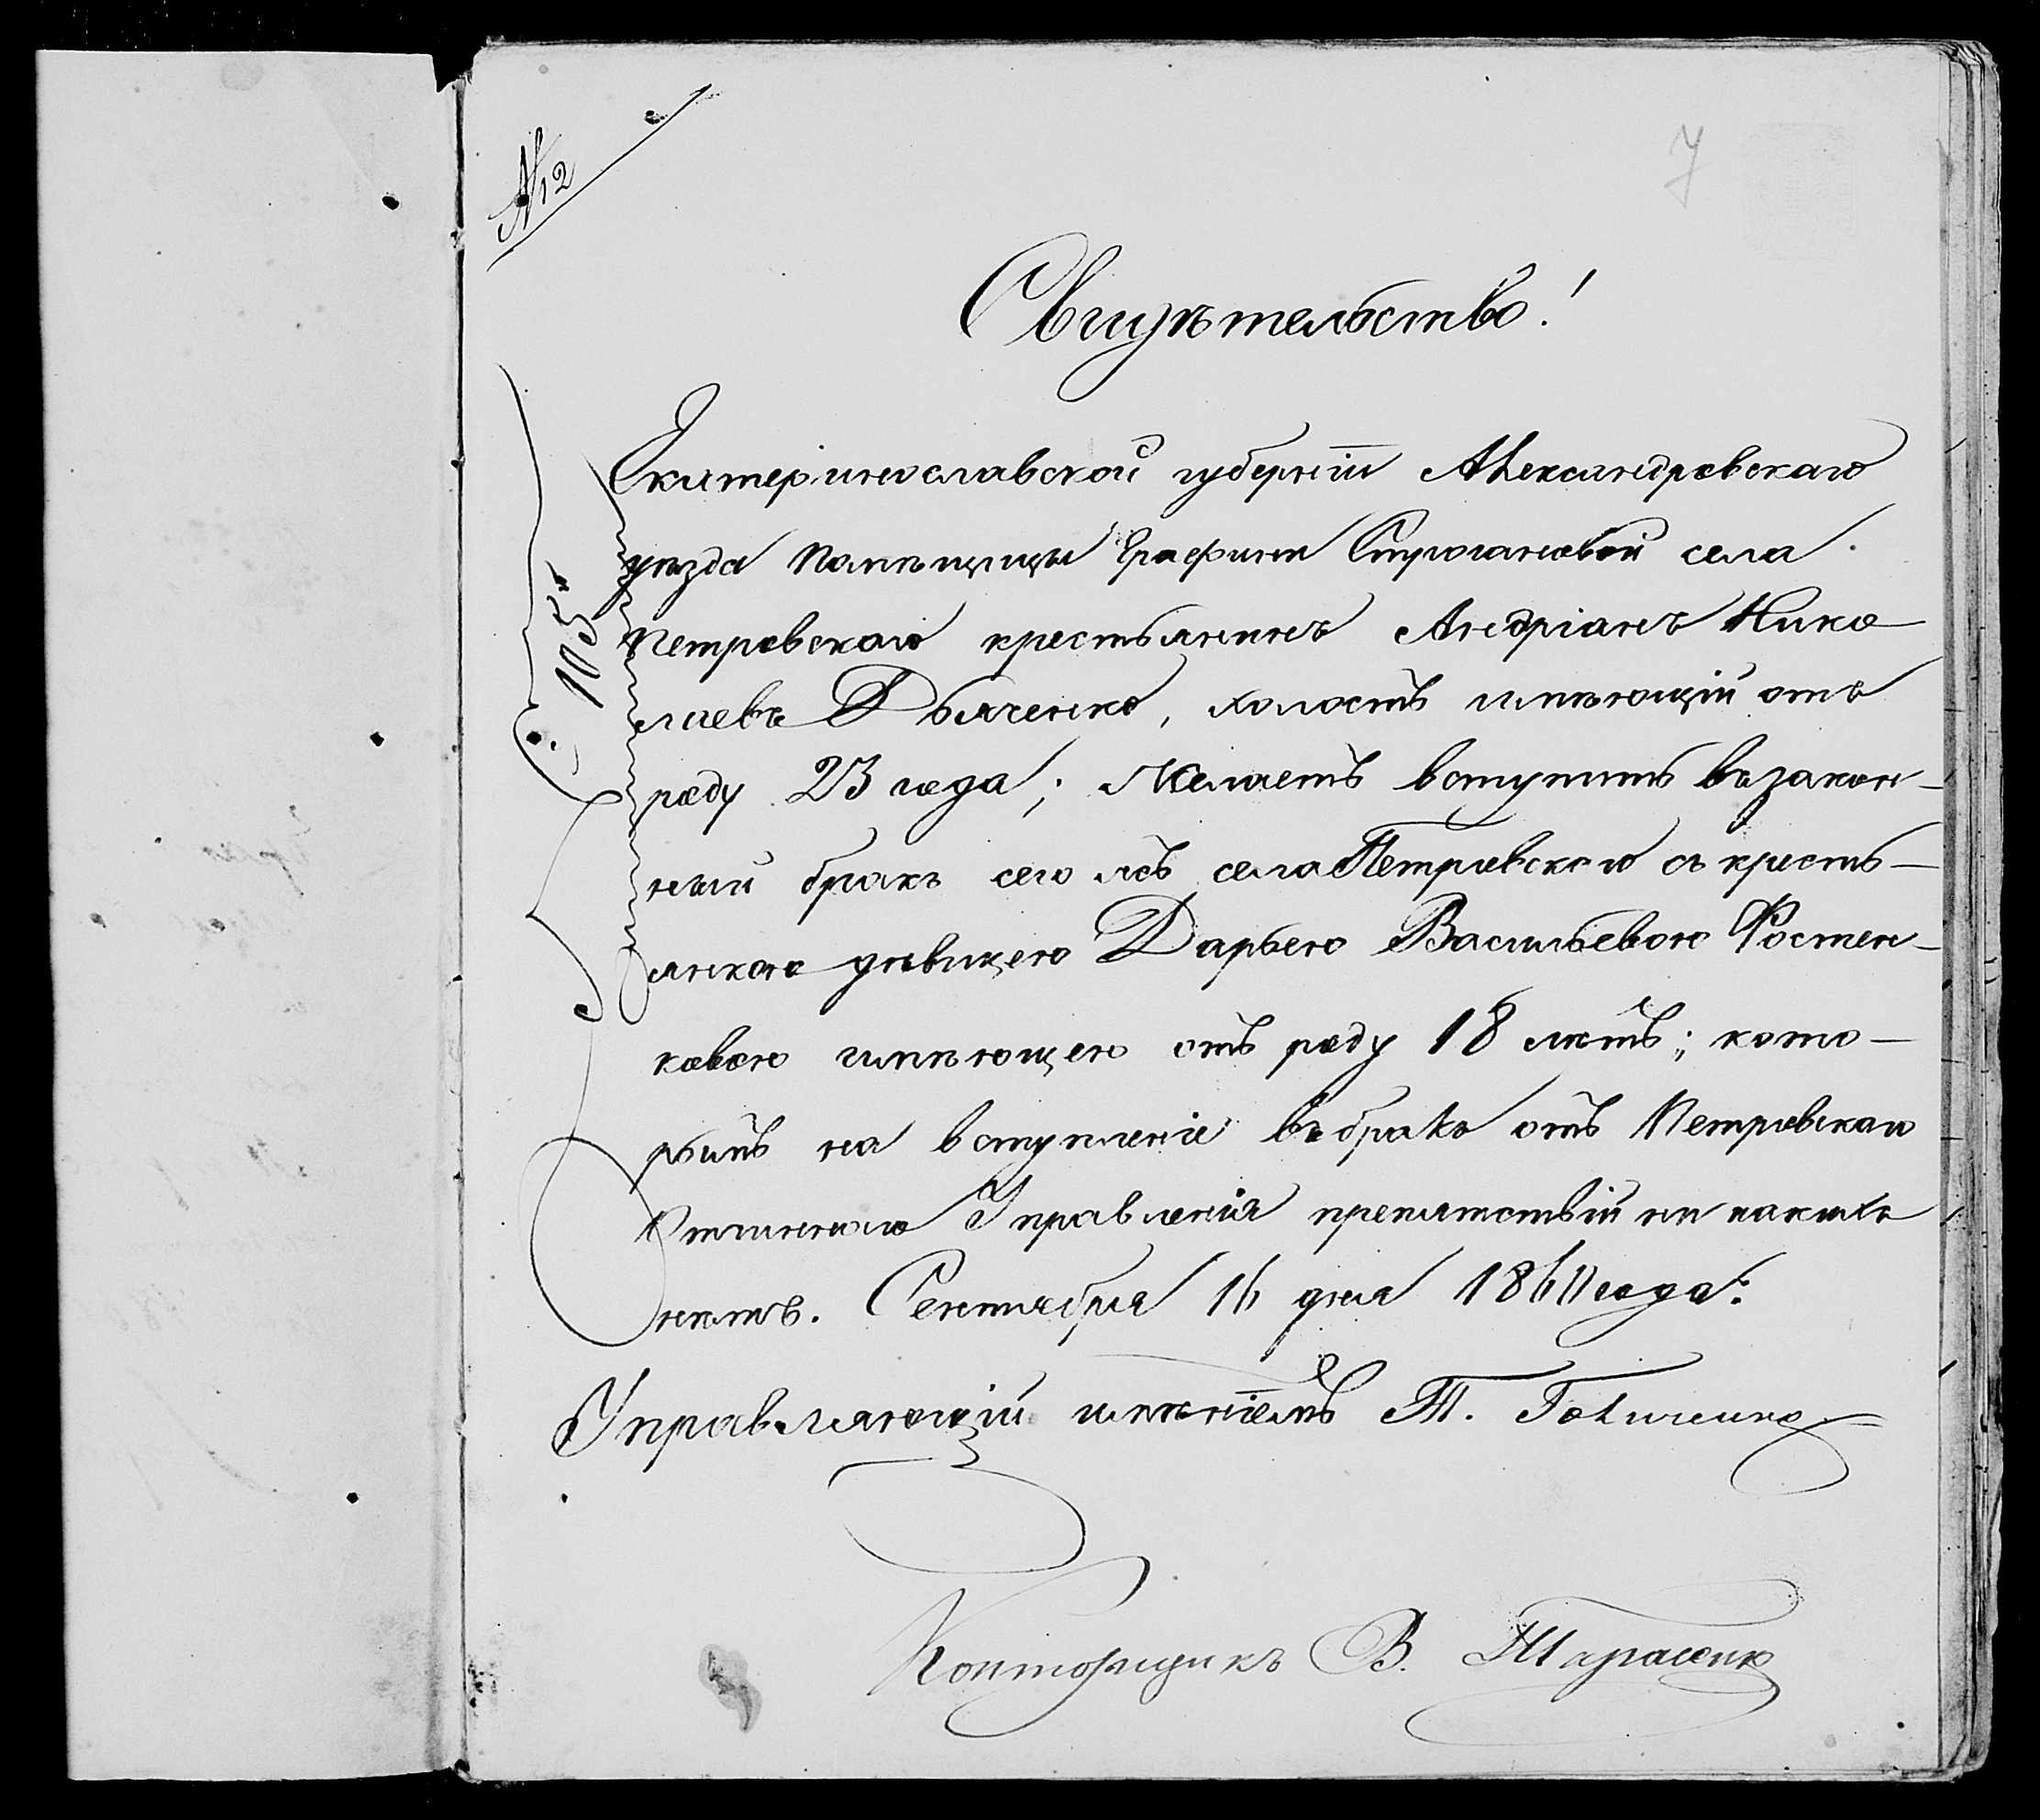 № 12
7
Свидѣтельство!
Екатеринославской губерніи Александровскаго
уѣзда помѣщицы Графини Строгановой села
Петровскаго крестьянинъ Андріанъ Нико
лаевъ Дьяченко, холостъ имѣющій отъ
роду 23 года; Желаетъ вступить въ закон-
ный бракъ сего жъ села Петровского съ кресть-
янкою дѣвицею Дарьею Васильевою Костен-
ковою имѣющею отъ роду 18 летъ; кото-
рымъ на вступленіе въ бракъ отъ Петровскаго
Управленія препятствій ни какихъ
нѣтъ. Сентября 16 дня года.
Управляющій имѣніемъ
Конторщикъ В. Тарасенко